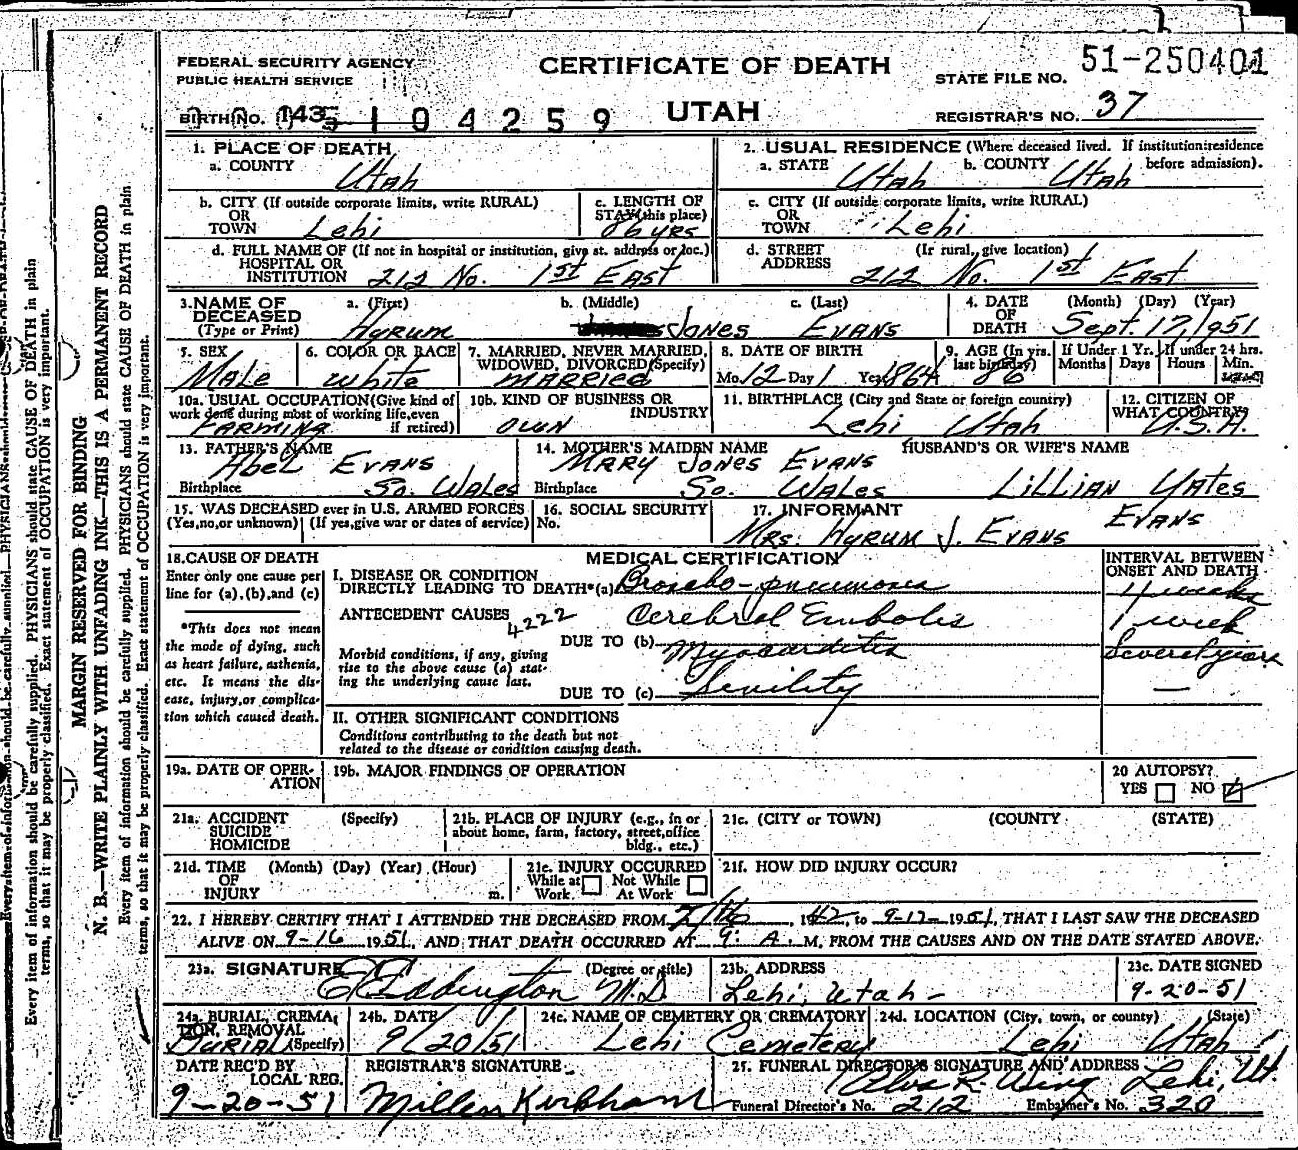 FEDERAL SECURITY AGENCY
PUBLIC HEALTH SERVICE
CERTIFICATE OF DEATH
STATE FILE NO. 51-250401
BIRTH NO. 143 104259
UTAH
REGISTRAR'S NO. 37
1. PLACE OF DEATH
a. COUNTY Utah
2. USUAL RESIDENCE (Where deceased lived. If institution: residence before admission).
a. STATE Utah b. COUNTY Utah
b. CITY (If outside corporate limits, write RURAL) OR TOWN Lehi
c. LENGTH OF STAY (this place) 86 yrs
c. CITY (If outside corporate limits, write RURAL) OR TOWN Lehi
d. FULL NAME OF (If not in hospital or institution, give st. address or loc.) HOSPITAL OR INSTITUTION 212 No. 1st East
d. STREET ADDRESS (If rural, give location) 212 No. 1st East
3. NAME OF DECEASED (Type or Print) a. (First) Hyrum b. (Middle) Jones c. (Last) Evans
4. DATE OF DEATH (Month) (Day) (Year) Sept. 17, 1951
5. SEX Male
6. COLOR OR RACE White
7. MARRIED, NEVER MARRIED, WIDOWED, DIVORCED (Specify) Married
8. DATE OF BIRTH Mo. 12 Day 1 Year 1864
9. AGE (In yrs. last birthday) 86
If Under 1 Yr. Months Days
If under 24 hrs. Hours Min.
10a. USUAL OCCUPATION (Give kind of work done during most of working life, even if retired) Farming
10b. KIND OF BUSINESS OR INDUSTRY Own
11. BIRTHPLACE (City and State or foreign country) Lehi Utah
12. CITIZEN OF WHAT COUNTRY? U.S.A.
13. FATHER'S NAME Abel Evans
Birthplace So. Wales
14. MOTHER'S MAIDEN NAME Mary Jones Evans
Birthplace So. Wales
HUSBAND'S OR WIFE'S NAME
Lillian Yates Evans
15. WAS DECEASED ever in U.S. ARMED FORCES (Yes, no, or unknown) (If yes, give war or dates of service)
16. SOCIAL SECURITY No.
17. INFORMANT
Mrs. Hyrum J. Evans
18. CAUSE OF DEATH
Enter only one cause per line for (a), (b), and (c)
*This does not mean the mode of dying, such as heart failure, asthenia, etc. It means the disease, injury, or complication which caused death.
MEDICAL CERTIFICATION
INTERVAL BETWEEN ONSET AND DEATH
I. DISEASE OR CONDITION DIRECTLY LEADING TO DEATH* (a) Broncho-pneumonia weeks
ANTECEDENT CAUSES 4222 Cerebral Embolis 1 week
Morbid conditions, if any, giving rise to the above cause (a) stating the underlying cause last.
DUE TO (b) Myocarditis Several years
DUE TO (c) Senility —
II. OTHER SIGNIFICANT CONDITIONS
Conditions contributing to the death but not related to the disease or condition causing death.
19a. DATE OF OPERATION
19b. MAJOR FINDINGS OF OPERATION
20 AUTOPSY? YES NO
21a. ACCIDENT SUICIDE HOMICIDE (Specify)
21b. PLACE OF INJURY (e.g., in or about home, farm, factory, street, office bldg., etc.)
21c. (CITY or TOWN) (COUNTY) (STATE)
21d. TIME OF INJURY (Month) (Day) (Year) (Hour) m.
21e. INJURY OCCURRED While at Work Not While At Work
21f. HOW DID INJURY OCCUR?
22. I HEREBY CERTIFY THAT I ATTENDED THE DECEASED FROM 1942, to 9-17-1951, THAT I LAST SAW THE DECEASED
ALIVE ON 9-16 1951, AND THAT DEATH OCCURRED AT 9: A. M, FROM THE CAUSES AND ON THE DATE STATED ABOVE.
23a. SIGNATURE (Degree or title) Eddington M.D.
23b. ADDRESS Lehi, Utah-
23c. DATE SIGNED 9-20-51
24a. BURIAL, CREMATION, REMOVAL (Specify) Burial
24b. DATE 9/20/51
24c. NAME OF CEMETERY OR CREMATORY Lehi Cemetery
24d. LOCATION (City, town, or county) (State) Lehi Utah
DATE REC'D BY LOCAL REG. 9-20-51
REGISTRAR'S SIGNATURE Kirkham
25. FUNERAL DIRECTOR'S SIGNATURE AND ADDRESS Wing Lehi, Ut.
Funeral Director's No. 212 Embalmer's No. 320
MARGIN RESERVED FOR BINDING
N. B.—WRITE PLAINLY WITH UNFADING INK—THIS IS A PERMANENT RECORD
Every item of information should be carefully supplied. PHYSICIANS should state CAUSE OF DEATH in plain
terms, so that it may be properly classified. Exact statement of OCCUPATION is very important.
Every item of information should be carefully supplied. PHYSICIANS should state CAUSE OF DEATH in plain
terms, so that it may be properly classified. Exact statement of OCCUPATION is very important.